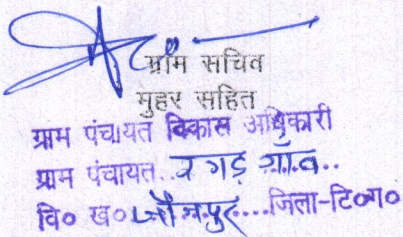 ग्राम सचिव
मुहर सहित
ग्राम पंचायत विकास अधिकारी
ग्राम पंचायत..व गड़ गाँव..
वि० ख० जौनपुर....जिला-टि०ग०